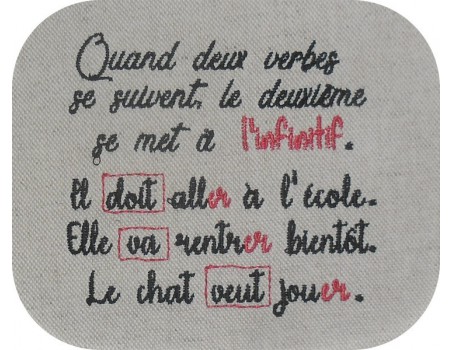 Quand deux verbes
se suivent, le deuxième
se met à l'infinitif.
Il doit aller à l'école.
Elle va rentrer bientôt.
Le chat veut jouer.